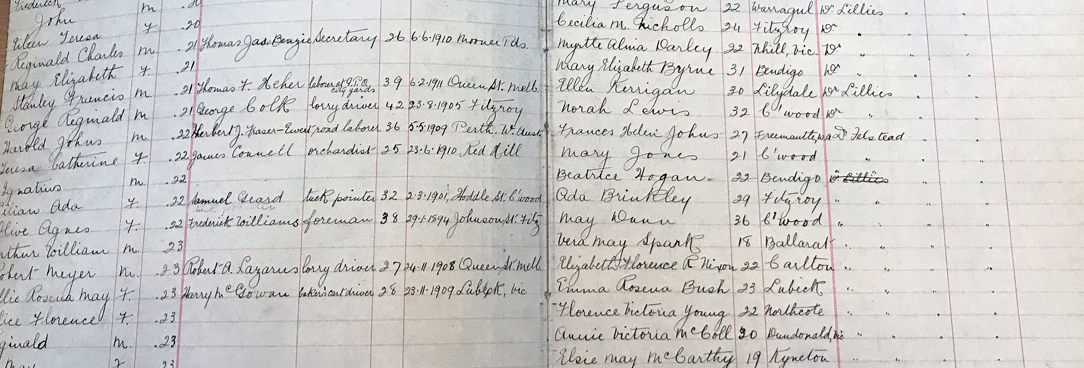 Frederick m. .20 Mary Ferguson 22 Warragul Dr Lillies
John .20 Cecilia M. Nicholls 24 Fitzroy Dr
Eileen Teresa F. .21 Thomas Jas. Benzie Secretary 26 6.6.1910 Myrtle Alma Darley 22 Nhill, Vic. Dr
Reginald Charles m. .21 Mary Elizabeth Byrne 31 Bendigo Dr
May Elizabeth F. .21 Thomas F. labourer G.P.O. 39 6.2.1911 Queen St. Melb. Ellen Kerrigan 30 Lilydale Dr Lillies
Stanley Francis m. .21 George Colk lorry driver 42 23.8.1905 Fitzroy Norah Lewis 32 C'wood Dr
George Reginald m. .22 Herbert J. Fraser-Ewest road laborer 36 5.5.1909 Perth, W. Aust. Frances Helen Johns 27 Freemantle, W.A. Dr Felstead
Harold Johns m. .22 James Connell orchardist 25 23.6.1910 Red Hill Mary Jones 21 C'wood " "
Teresa Catherine F. .22 Beatrice Hogan 22 Bendigo Dr Lillies
Ignatius m. .22 Samuel Geard tuck pointer 32 2.3.1901 Hoddle St. C'wood Ada Brinkley 29 Fitzroy " "
Lilian Ada F. .22 Frederick Williams foreman 38 29.1.1894 Johnson St. Fitz May Dunn 36 C'wood " "
Olive Agnes F. .23 Vera May Spark 18 Ballarat " "
Arthur William m. .23 Robert A. Lazarus lorry driver 27 24.11.1908 Queen St. Melb Elizabeth Florence R. Nixon 22 Carlton " "
Robert Meyer m. .23 Harry McGowan baker's cart driver 28 23.11.1909 Lubeck, Vic Emma Rosena Bush 23 Lubeck " "
Rosena May F. .23 Florence Victoria Young 22 Northcote " "
Florence F. .23 Annie Victoria McColl 20 Dundonald, Vic " "
m. .23 Elsie May McCarthy 19 Kyneton " "